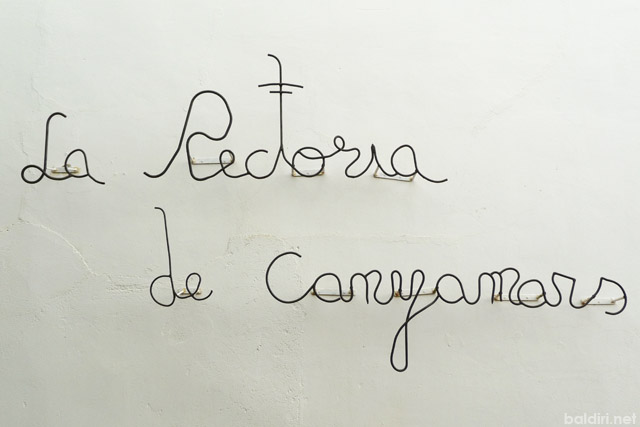 La Rectoria
de Canyamars
baldiri.net